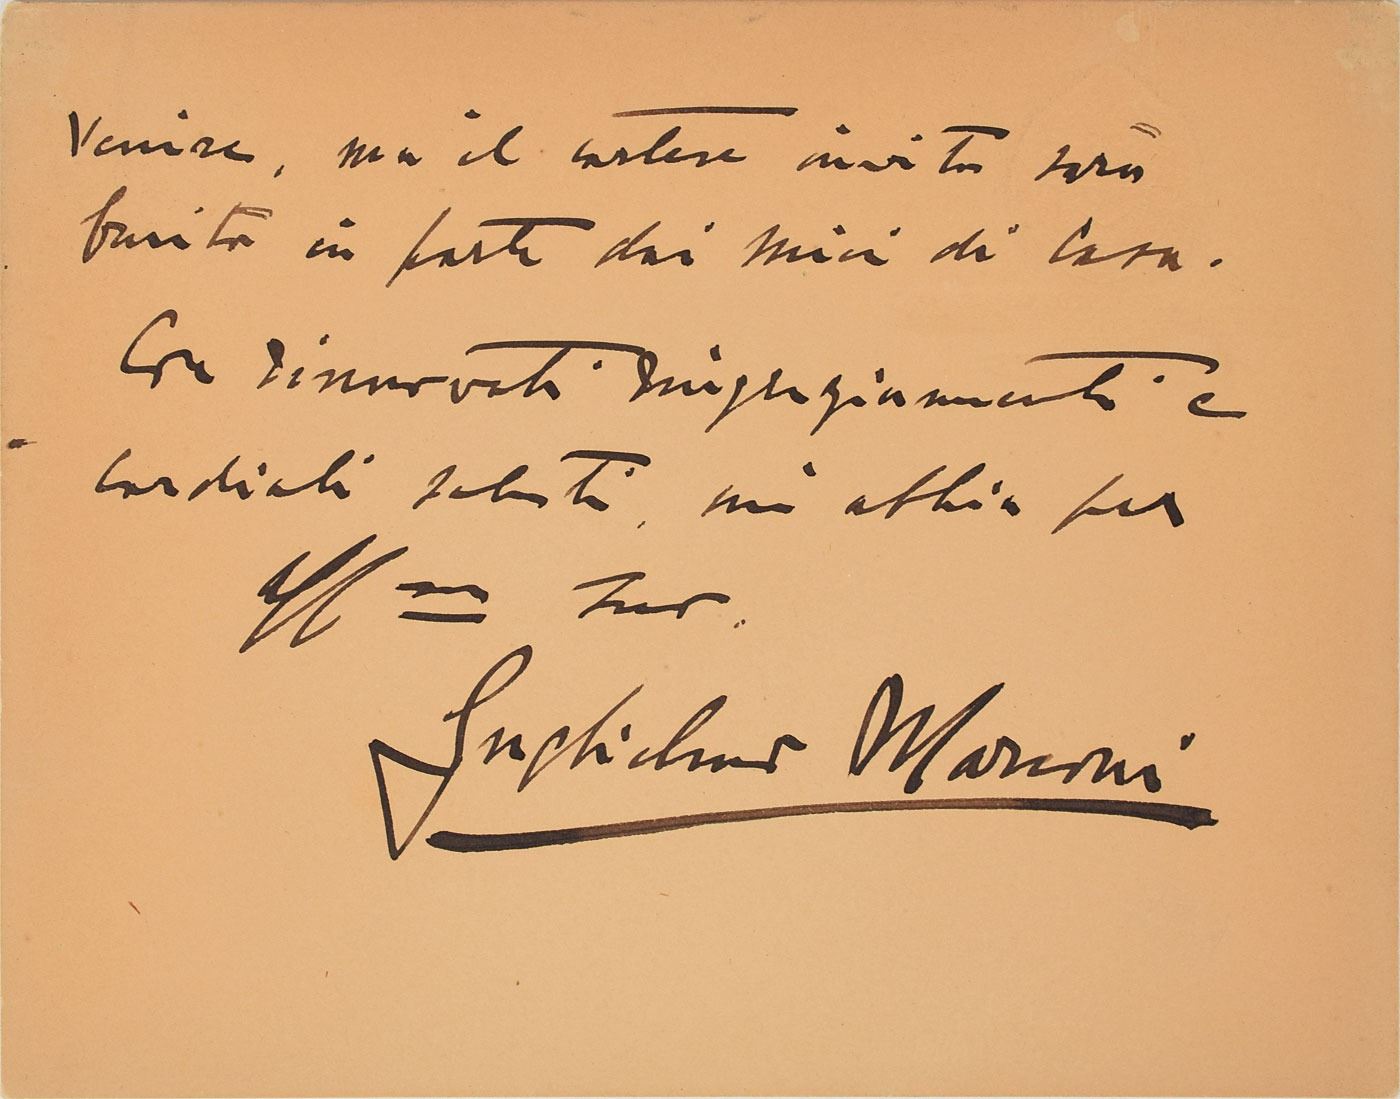 Venire, ma il cortese invito sarà
in parte dai miei di Casa.
Con rinnovati ringraziamenti e
cordiali saluti, mi abbia per
Aff= mo suo.
Guglielmo Marconi